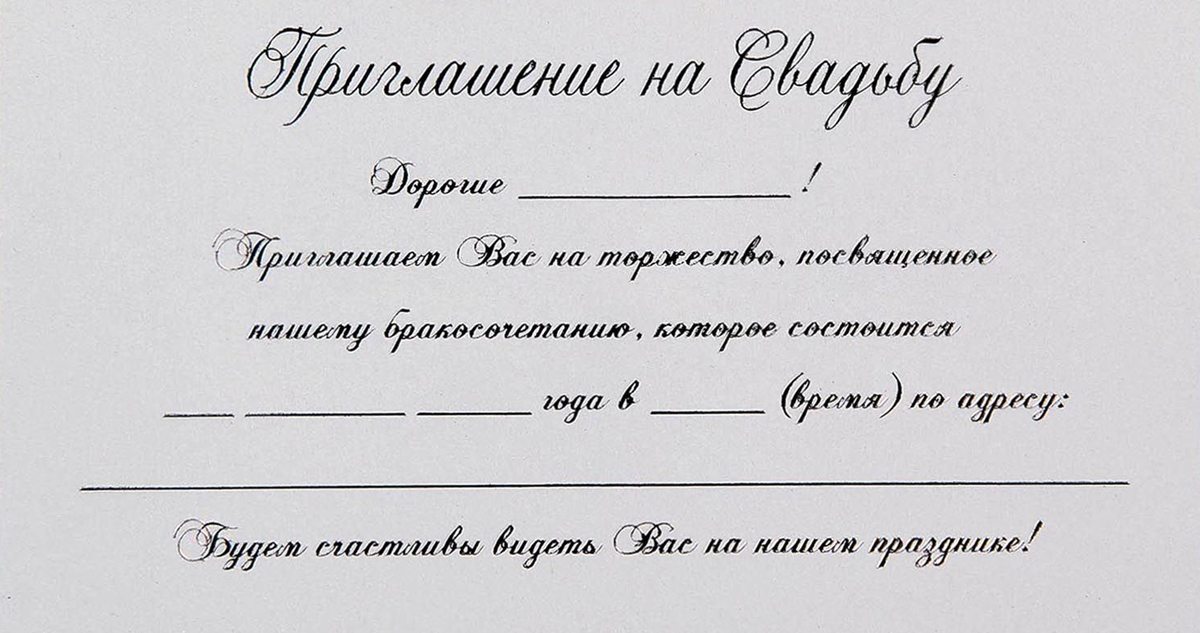 Приглашение на Свадьбу
Дорогие _______________ !
Приглашаем Вас на торжество, посвященное
нашему бракосочетанию, которое состоится
____ _________ ______ года в ______ (время) по адресу:
____________________________________________________________
Будем счастливы видеть Вас на нашем празднике!